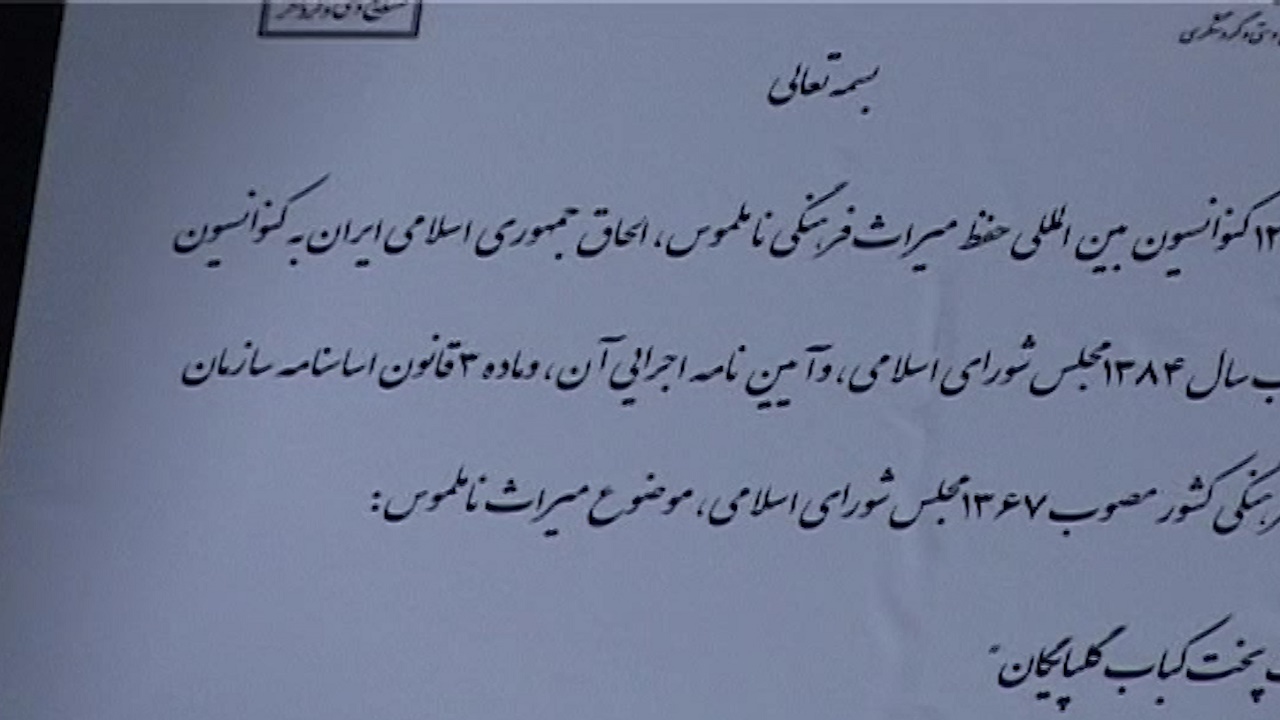 صنایع دستی و گردشگری
دستی و گردشگری
بسمه تعالی
۱۲ کنوانسیون بین المللی حفظ میراث فرهنگی ناملموس، الحاق جمهوری اسلامی ایران به کنوانسیون
سال ۱۳۸۴ مجلس شورای اسلامی، و آیین نامه اجرایی آن، و ماده ۳ قانون اساسنامه سازمان
کشور مصوب ۱۳۶۷ مجلس شورای اسلامی، موضوع میراث ناملموس:
پخت کباب گلپایگان"